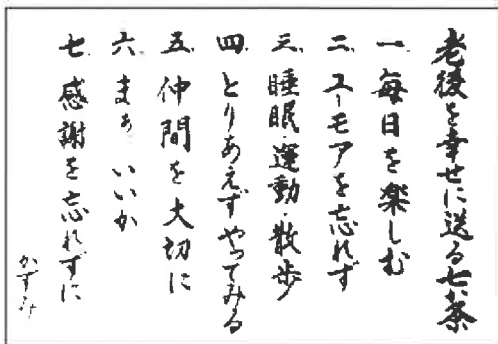 老後を幸せに送る七ヶ条
一、毎日を楽しむ
二、ユーモアを忘れず
三、睡眠・運動・散歩
四、とりあえずやってみる
五、仲間を大切に
六、まぁいいか
七、感謝を忘れずに
かずみ